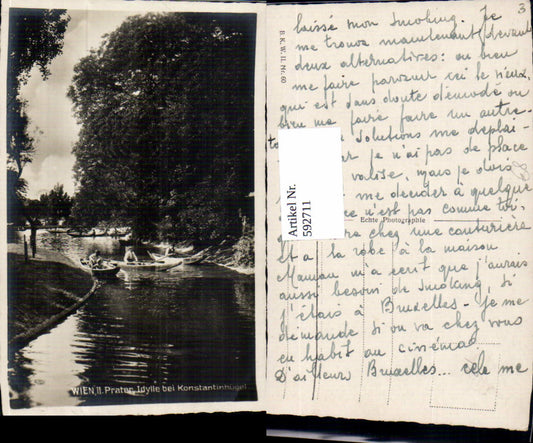 WIEN II. Prater, Idylle bei Konstantinhügel
B. K. W. II. Nr. 60
3
laissé mon smoking. Je
me trouve maintenant devant
deux alternatives: ou bien
me faire parvenir ici le vieux,
qui est sans doute démodé ou
bien me faire faire un autre.
solutions me déplai-
je n'ai pas de place
valise, mais je dois
me décider à quelque
Echte Photographie
ce n'est pas comme toi,
chez une couturière
et a la robe à la maison
Maman m'a écrit que j'aurais
aussi besoin de smoking, si
j'étais à Bruxelles - Je me
demande si on va chez vous
en habit au cinéma.
D'ailleurs Bruxelles... cela me
Artikel Nr.
592711